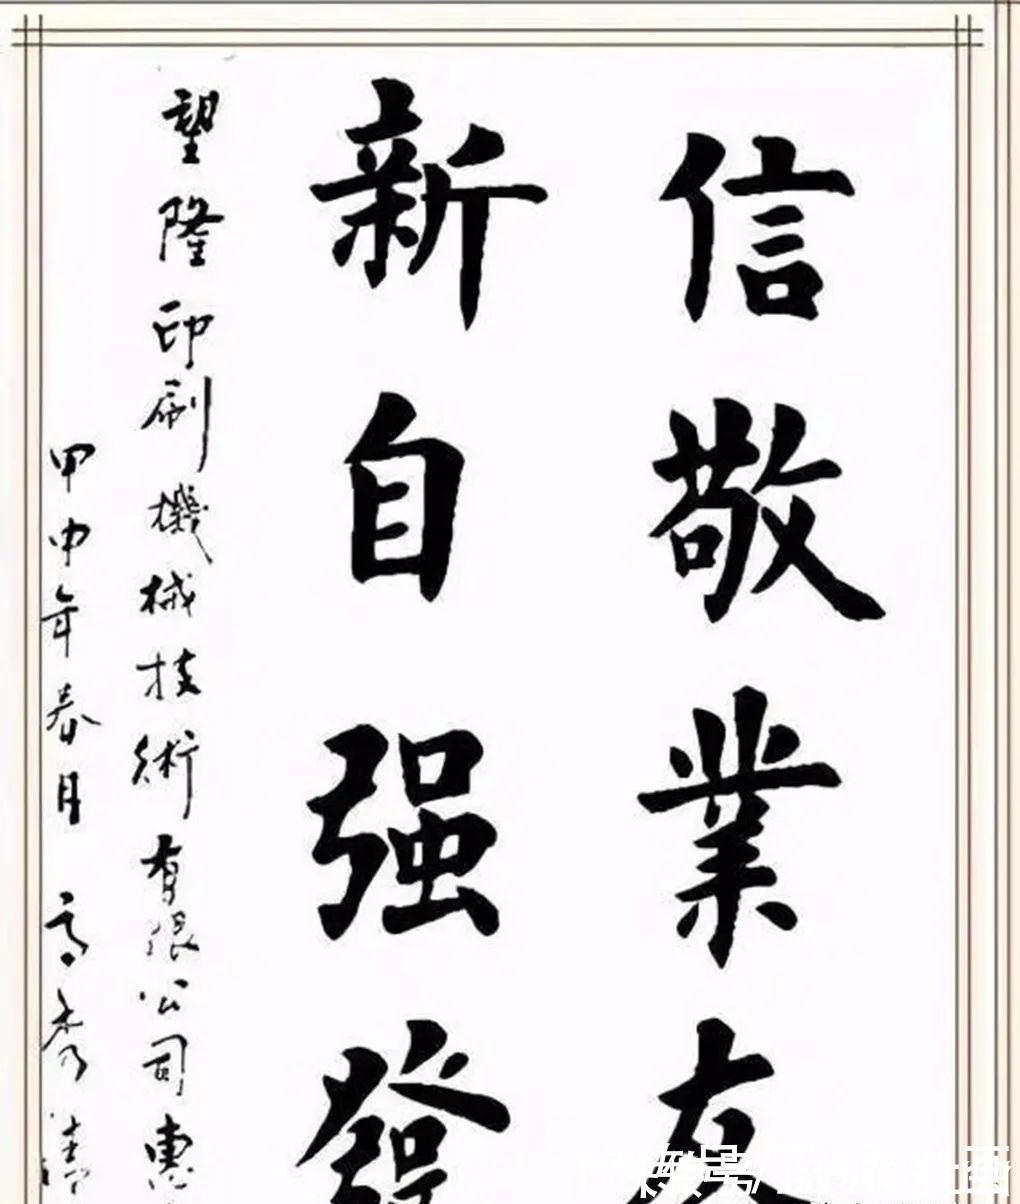 信敬業友
新自强發
望隆印刷機械技術有限公司惠
甲申年春月高秀清